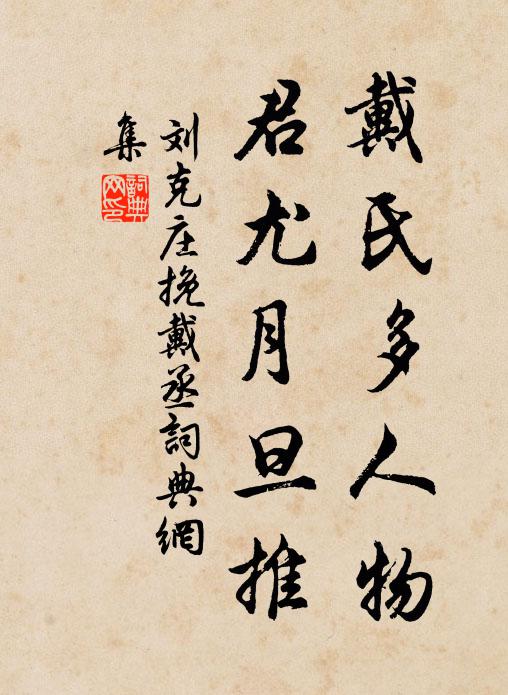 戴氏多人物
君尤月旦推
刘克庄挽戴丞詞典網
集
詞典网印